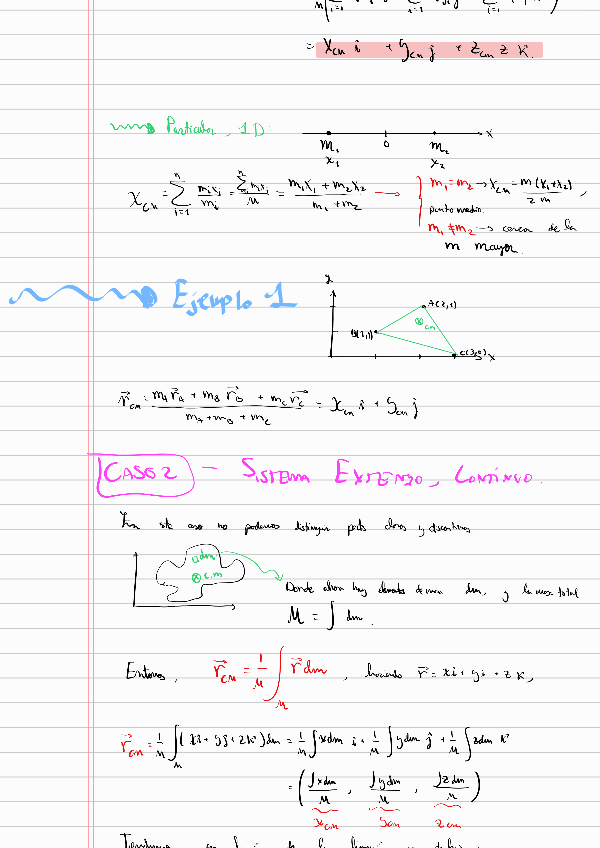 = x_cm i + y_cm j + z_cm z k.
Particular, 1D:
m₁ 0 m₂ x
x₁ x₂
x_cm = Σ_{i=1}^{n} m_i x_i / m_i = Σ^{n} m_i x_i / M = (m₁x₁ + m₂x₂) / (m₁ + m₂) →
m₁ = m₂ → x_cm = m(x₁+x₂) / 2m,
punto medio.
m₁ ≠ m₂ → cerca de la
m mayor.
Ejemplo 1
y
A(2,2)
cm
B(1,1)
C(3,0) x
r⃗_cm = (m_A r⃗_A + m_B r⃗_B + m_C r⃗_C) / (m_A + m_B + m_C) = x_cm i + y_cm j
CASO 2 - SISTEMA EXTENZO, CONTINUO.
En este caso no podemos distinguir
dm
c.m
Donde ahora hay elementos de masa dm, y la masa total
M = ∫ dm.
Entonces, r⃗_cm = 1/M ∫_M r⃗ dm, haciendo r⃗ = xi + yj + zk,
r⃗_cm = 1/M ∫_M (xi + yj + zk) dm = 1/M ∫ x dm i + 1/M ∫ y dm j + 1/M ∫ z dm k
= (∫x dm / M, ∫y dm / M, ∫z dm / M)
x_cm y_cm z_cm